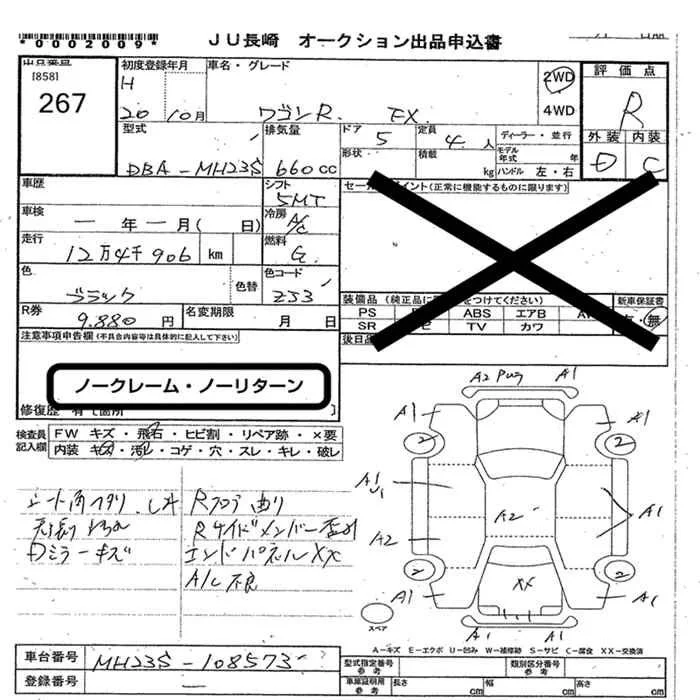 *0002009*
JU長崎 オークション出品申込書
出品番号
[858]
267
初度登録年月
H
20 10月
車名・グレード
ワゴンR FX
2WD
4WD
評価点
R
外装 内装
D C
型式
DBA-MH23S
排気量
660cc
ドア 5
形状
定員 4人
積載 kg
ディーラー・並行
モデル年式 年
ハンドル 左・右
車歴
シフト
5MT
車検
— 年 — 月( 日)
冷房
A/C
走行
12万4千906 km
燃料
G
色
ブラック
色替
色コード
ZJ3
R券
9.880 円
名変期限
月 日
セールスポイント(正常に機能するものに限ります)
装備品(純正品に をつけてください)
新車保証書
PS ABS エアB
SR TV カワ
・無
後日品
注意事項申告欄(不具合内容等は具体的に記入して下さい)
ノークレーム・ノーリターン
修復歴 有[箇所 ]
検査員
記入欄
FW キズ・飛石・ヒビ割・リペア跡・×要
内装 キズ・汚レ・コゲ・穴・スレ・キレ・破レ
Dミラーキズ
Rフロア曲り
Rサイドメンバー
エンドパネルXX
A/C不良
A2 A1
A1 A1
2 2
A1
U1
A2 A1
A2
2 2
XX
A1 A1
A1 A1
スペア
A-キズ E-エクボ U-凹み W-補修跡 S-サビ C-腐食 XX-交換済
車台番号
MH23S-108573
登録番号
—
型式指定番号
参考
類別区分番号
参考
車庫証明用
参考
長さ cm
幅 cm
高さ cm